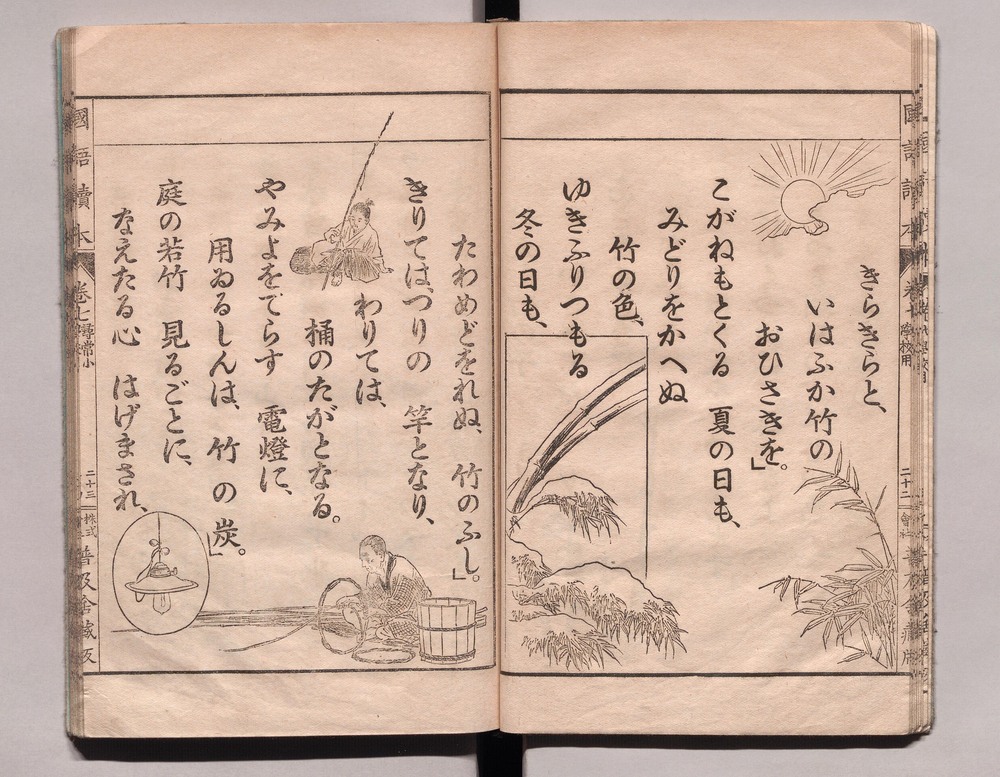 きらきらと、
いはふか竹の
おひさきを。」
こがねもとくる　夏の日も、
みどりをかへぬ
竹の色、
ゆきふりつもる
冬の日も、
たわめどをれぬ、　竹のふし。」
きりては、つりの　竿となり、
わりては、
桶のたがとなる。
やみよをてらす　電燈に、
用ゐるしんは、　竹の炭。」
庭の若竹　見るごとに、
なえたる心　はげまされ、
國語讀本
卷七
尋常小
二十三
普及舍藏版
二十二